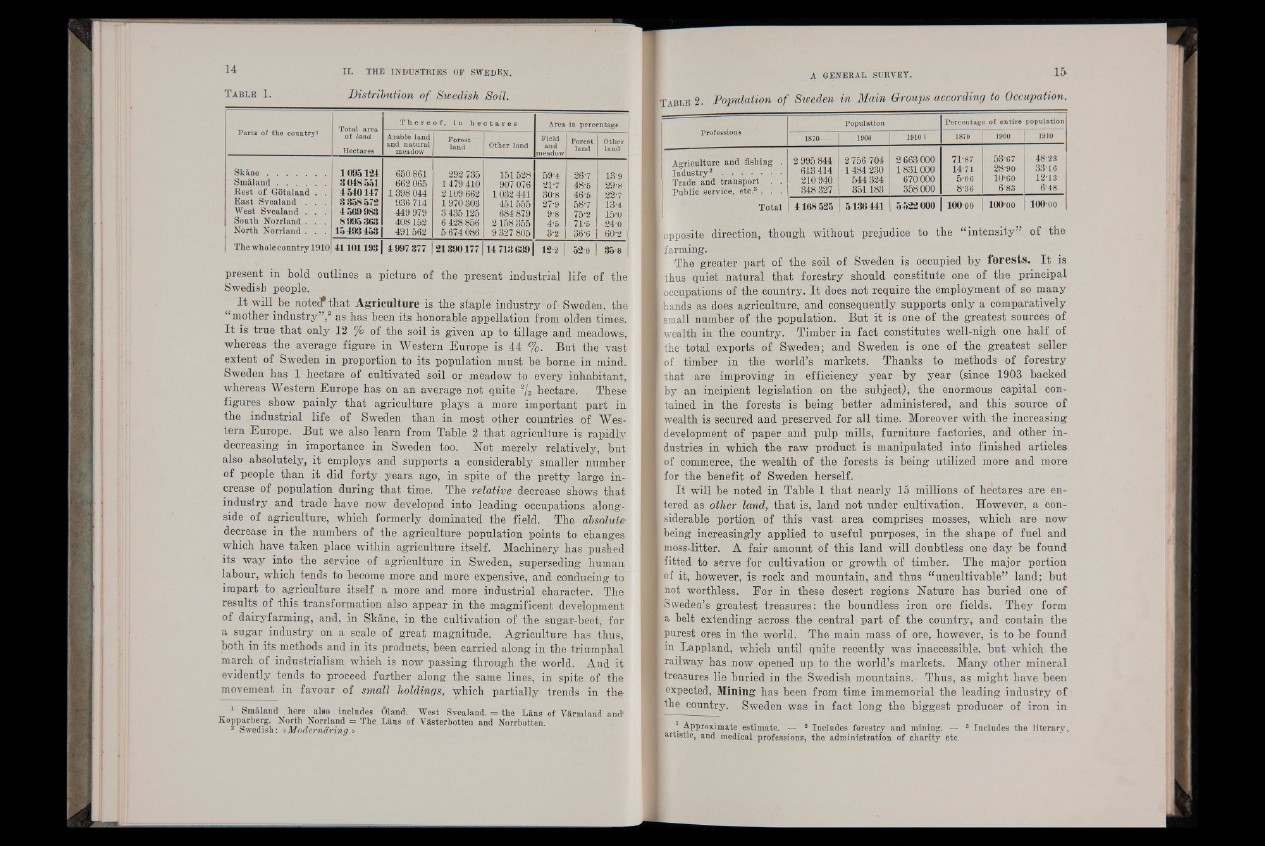 14 II. THE INDUSTRIES OF SWEDEN.
TABLE 1. Distribution of Swedish Soil.
Parts of the country¹ Total area of land Hectares Thereof, in hectares Area in percentage
Arable land and natural meadow Forest land Other land Field and meadow Forest land Other land
Skåne . . . . . . . 1 095 124 650 861 292 735 151 528 59·4 26·7 13·9
Småland . . . . . . 3 048 551 662 065 1 479 410 907 076 21·7 48·5 29·8
Rest of Götaland . . 4 540 147 1 398 044 2 109 662 1 032 441 30·8 46·5 22·7
East Svealand . . . 3 358 572 936 714 1 970 303 451 555 27·9 58·7 13·4
West Svealand . . . 4 569 983 449 979 3 435 125 684 879 9·8 75·2 15·0
South Norrland . . . 8 995 363 408 152 6 428 856 2 158 355 4·5 71·5 24·0
North Norrland . . . 15 493 453 491 562 5 674 086 9 327 805 3·2 36·6 60·2
The whole country 1910 41 101 193 4 997 377 21 390 177 14 713 639 12·2 52·0 35·8
present in bold outlines a picture of the present industrial life of the
Swedish people.
It will be noted that Agriculture is the staple industry of Sweden, the
“mother industry”,² as has been its honorable appellation from olden times.
It is true that only 12 % of the soil is given up to tillage and meadows,
whereas the average figure in Western Europe is 44 %. But the vast
extent of Sweden in proportion to its population must be borne in mind.
Sweden has 1 hectare of cultivated soil or meadow to every inhabitant,
whereas Western Europe has on an average not quite ²/₃ hectare. These
figures show painly that agriculture plays a more important part in
the industrial life of Sweden than in most other countries of Wes-
tern Europe. But we also learn from Table 2 that agriculture is rapidly
decreasing in importance in Sweden too. Not merely relatively, but
also absolutely, it employs and supports a considerably smaller number
of people than it did forty years ago, in spite of the pretty large in-
crease of population during that time. The relative decrease shows that
industry and trade have now developed into leading occupations along-
side of agriculture, which formerly dominated the field. The absolute
decrease in the numbers of the agriculture population points to changes
which have taken place within agriculture itself. Machinery has pushed
its way into the service of agriculture in Sweden, superseding human
labour, which tends to become more and more expensive, and conducing to
impart to agriculture itself a more and more industrial character. The
results of this transformation also appear in the magnificent development
of dairyfarming, and, in Skåne, in the cultivation of the sugar-beet, for
a sugar industry on a scale of great magnitude. Agriculture has thus,
both in its methods and in its products, been carried along in the triumphal
march of industrialism which is now passing through the world. And it
evidently tends to proceed further along the same lines, in spite of the
movement in favour of small holdings, which partially trends in the
¹ Småland here also includes Öland. West Svealand = the Läns of Värmland and
Kopparberg. North Norrland = The Läns of Västerbotten and Norrbotten.
² Swedish: »Modernäring.»
A GENERAL SURVEY. 15
TABLE 2. Population of Sweden in Main Groups according to Occupation.
Professions Population Percentage of entire population
1870 1900 1910 ¹ 1870 1900 1910
Agriculture and fishing . 2 995 844 2 756 704 2 663 000 71·87 53·67 48·23
Industry² . . . . . . . 613 414 1 484 230 1 831 000 14·71 28·90 33·16
Trade and transport . . 210 940 544 324 670 000 5·06 10·60 12·13
Public service, etc.³ . . 348 327 351 183 358 000 8·36 6·83 6·48
Total 4 168 525 5 136 441 5 522 000 100·00 100·00 100·00
opposite direction, though without prejudice to the “intensity” of the
farming.
The greater part of the soil of Sweden is occupied by forests. It is
thus quiet natural that forestry should constitute one of the principal
occupations of the country. It does not require the employment of so many
hands as does agriculture, and consequently supports only a comparatively
small number of the population. But it is one of the greatest sources of
wealth in the country. Timber in fact constitutes well-nigh one half of
the total exports of Sweden; and Sweden is one of the greatest seller
of timber in the world’s markets. Thanks to methods of forestry
that are improving in efficiency year by year (since 1903 backed
by an incipient legislation on the subject), the enormous capital con-
tained in the forests is being better administered, and this source of
wealth is secured and preserved for all time. Moreover with the increasing
development of paper and pulp mills, furniture factories, and other in-
dustries in which the raw product is manipulated into finished articles
of commerce, the wealth of the forests is being utilized more and more
for the benefit of Sweden herself.
It will be noted in Table 1 that nearly 15 millions of hectares are en-
tered as other land, that is, land not under cultivation. However, a con-
siderable portion of this vast area comprises mosses, which are now
being increasingly applied to useful purposes, in the shape of fuel and
moss-litter. A fair amount of this land will doubtless one day be found
fitted to serve for cultivation or growth of timber. The major portion
of it, however, is rock and mountain, and thus “uncultivable” land; but
not worthless. For in these desert regions Nature has buried one of
Sweden’s greatest treasures: the boundless iron ore fields. They form
a belt extending across the central part of the country, and contain the
purest ores in the world. The main mass of ore, however, is to be found
in Lappland, which until quite recently was inaccessible, but which the
railway has now opened up to the world’s markets. Many other mineral
treasures lie buried in the Swedish mountains. Thus, as might have been
expected, Mining has been from time immemorial the leading industry of
the country. Sweden was in fact long the biggest producer of iron in
¹ Approximate estimate. — ² Includes forestry and mining. — ³ Includes the literary,
artistic, and medical professions, the administration of charity etc.